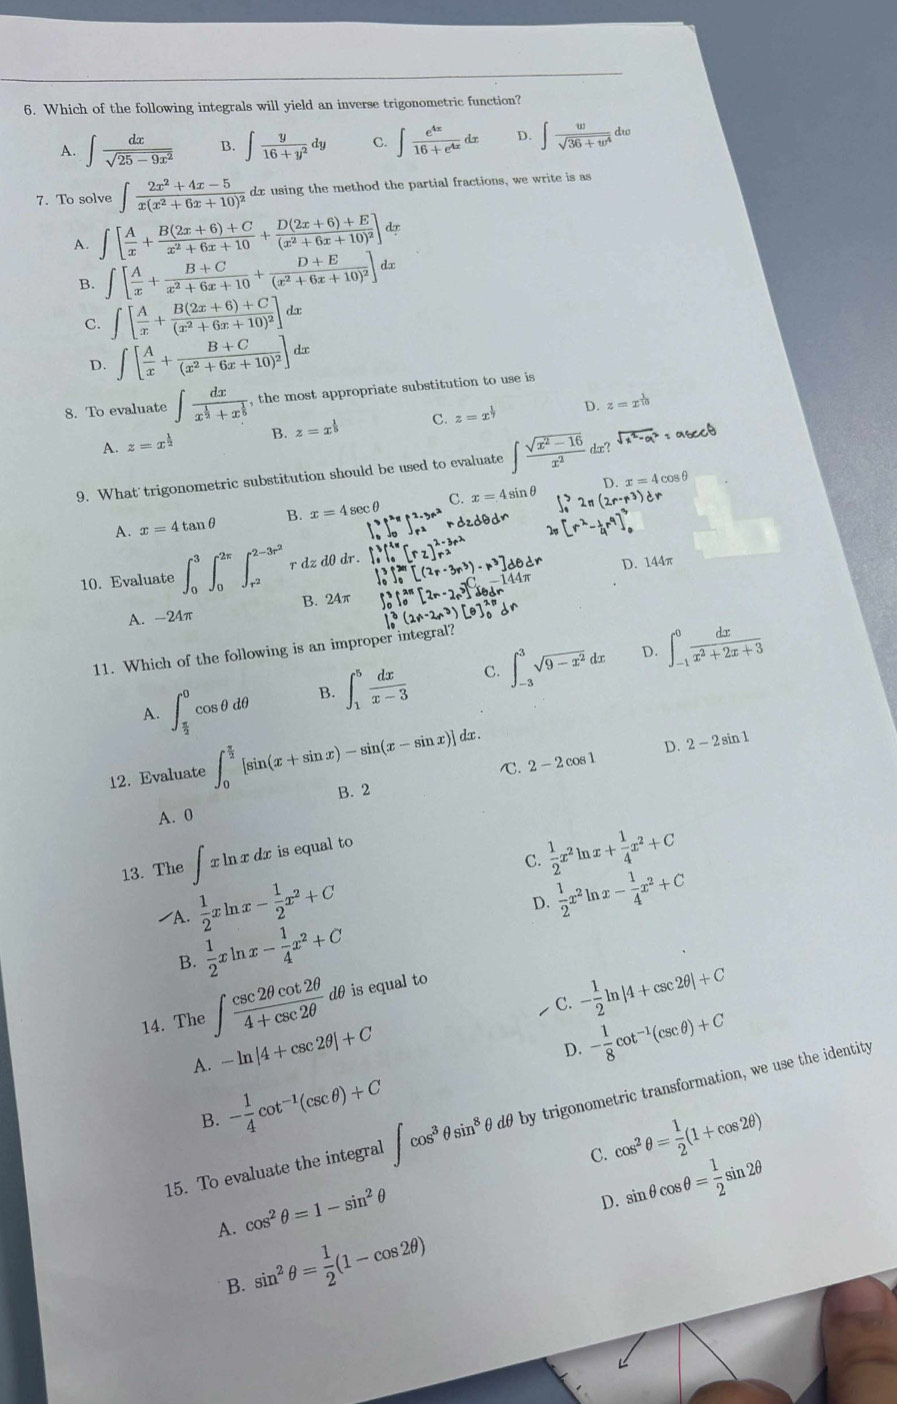 6. Which of the following integrals will yield an inverse trigonometric function?
A. ∫ dx/√(25 − 9x²) B. ∫ y/(16 + y²) dy C. ∫ e^(4x)/(16 + e^(4x)) dx D. ∫ w/√(36 + w⁴) dw
7. To solve ∫ (2x² + 4x − 5)/(x(x² + 6x + 10)²) dx using the method the partial fractions, we write is as
A. ∫ [A/x + (B(2x + 6) + C)/(x² + 6x + 10) + (D(2x + 6) + E)/(x² + 6x + 10)²] dx
B. ∫ [A/x + (B + C)/(x² + 6x + 10) + (D + E)/(x² + 6x + 10)²] dx
C. ∫ [A/x + (B(2x + 6) + C)/(x² + 6x + 10)²] dx
D. ∫ [A/x + (B + C)/(x² + 6x + 10)²] dx
8. To evaluate ∫ dx/, the most appropriate substitution to use is
A. z = x^(1/2) B. z = x^(1/5) C. z = x^(1/7) D. z = x^(1/10)
9. What trigonometric substitution should be used to evaluate ∫ √(x² − 16)/x² dx? √(x²−a²) = a sec θ
A. x = 4 tan θ B. x = 4 sec θ C. x = 4 sin θ D. x = 4 cos θ
10. Evaluate ∫₀³ ∫₀^(2π) ∫_(r²)^(2−3r²) r dz dθ dr.
∫₀³ ∫₀^(2π) ∫_(r²)^(2−3r²) r dz dθ dr
∫₀³ ∫₀^(2π) [rz]_(r²)^(2−3r²)
∫₀³ ∫₀^(2π) [(2r − 3r³) − r³] dθ dr
∫₀³ ∫₀^(2π) [2r − 2r³] dθ dr
∫₀³ (2r − 2r³) [θ]₀^(2π) dr
∫₀³ 2π (2r − r³) dr
2π [r² − ]₀³
A. −24π B. 24π C. −144π D. 144π
11. Which of the following is an improper integral?
A. ∫_(π/2)^0 cos θ dθ B. ∫₁⁵ dx/(x − 3) C. ∫₋₃³ √(9 − x²) dx D. ∫₋₁⁰ dx/(x² + 2x + 3)
12. Evaluate ∫₀^(π/2) [sin(x + sin x) − sin(x − sin x)] dx.
A. 0 B. 2 C. 2 − 2 cos 1 D. 2 − 2 sin 1
13. The ∫ x ln x dx is equal to
A. 1/2 x ln x − 1/2 x² + C
B. 1/2 x ln x − 1/4 x² + C
C. 1/2 x² ln x + 1/4 x² + C
D. 1/2 x² ln x − 1/4 x² + C
14. The ∫ (csc 2θ cot 2θ)/(4 + csc 2θ) dθ is equal to
A. − ln |4 + csc 2θ| + C
B. −1/4 cot⁻¹(csc θ) + C
C. −1/2 ln |4 + csc 2θ| + C
D. −1/8 cot⁻¹(csc θ) + C
15. To evaluate the integral ∫ cos³ θ sin⁸ θ dθ by trigonometric transformation, we use the identity
A. cos² θ = 1 − sin² θ
B. sin² θ = 1/2 (1 − cos 2θ)
C. cos² θ = 1/2 (1 + cos 2θ)
D. sin θ cos θ = 1/2 sin 2θ